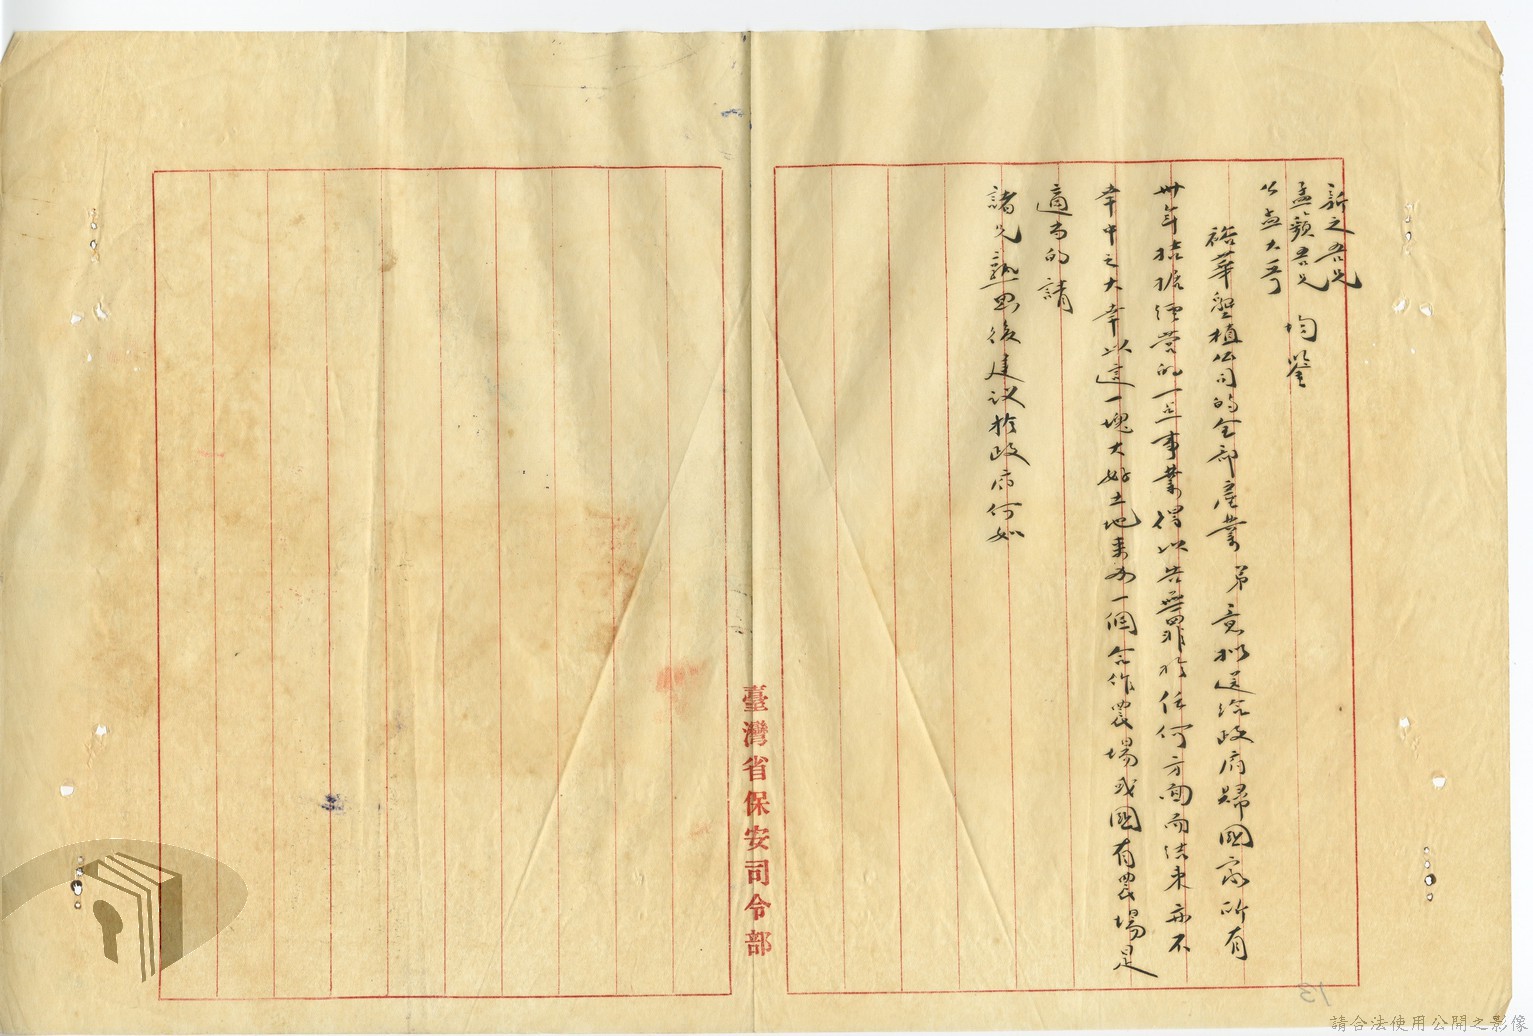 新之吾兄
孟籟吾兄 均鑒
公孟大哥
裕華墾植公司的全部產業弟意擬送給政府歸國家所有
卅年拮据經營的一点事業得以告無罪於任何方面而結束亦不
幸中之大幸以這一塊大好土地来办一個合作農場或國有農場是
適當的請
諸兄熟思後建议於政府何如
臺灣省保安司令部
13
請合法使用公開之影像